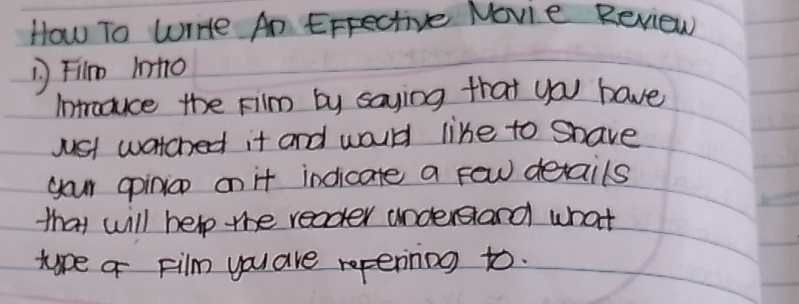 How To Write An Effective Movie Review
1.) Film Intro
Introduce the film by saying that you have
just watched it and would like to share
your opinion on it indicate a few details
that will help the reader understand what
type of film you are referring to.